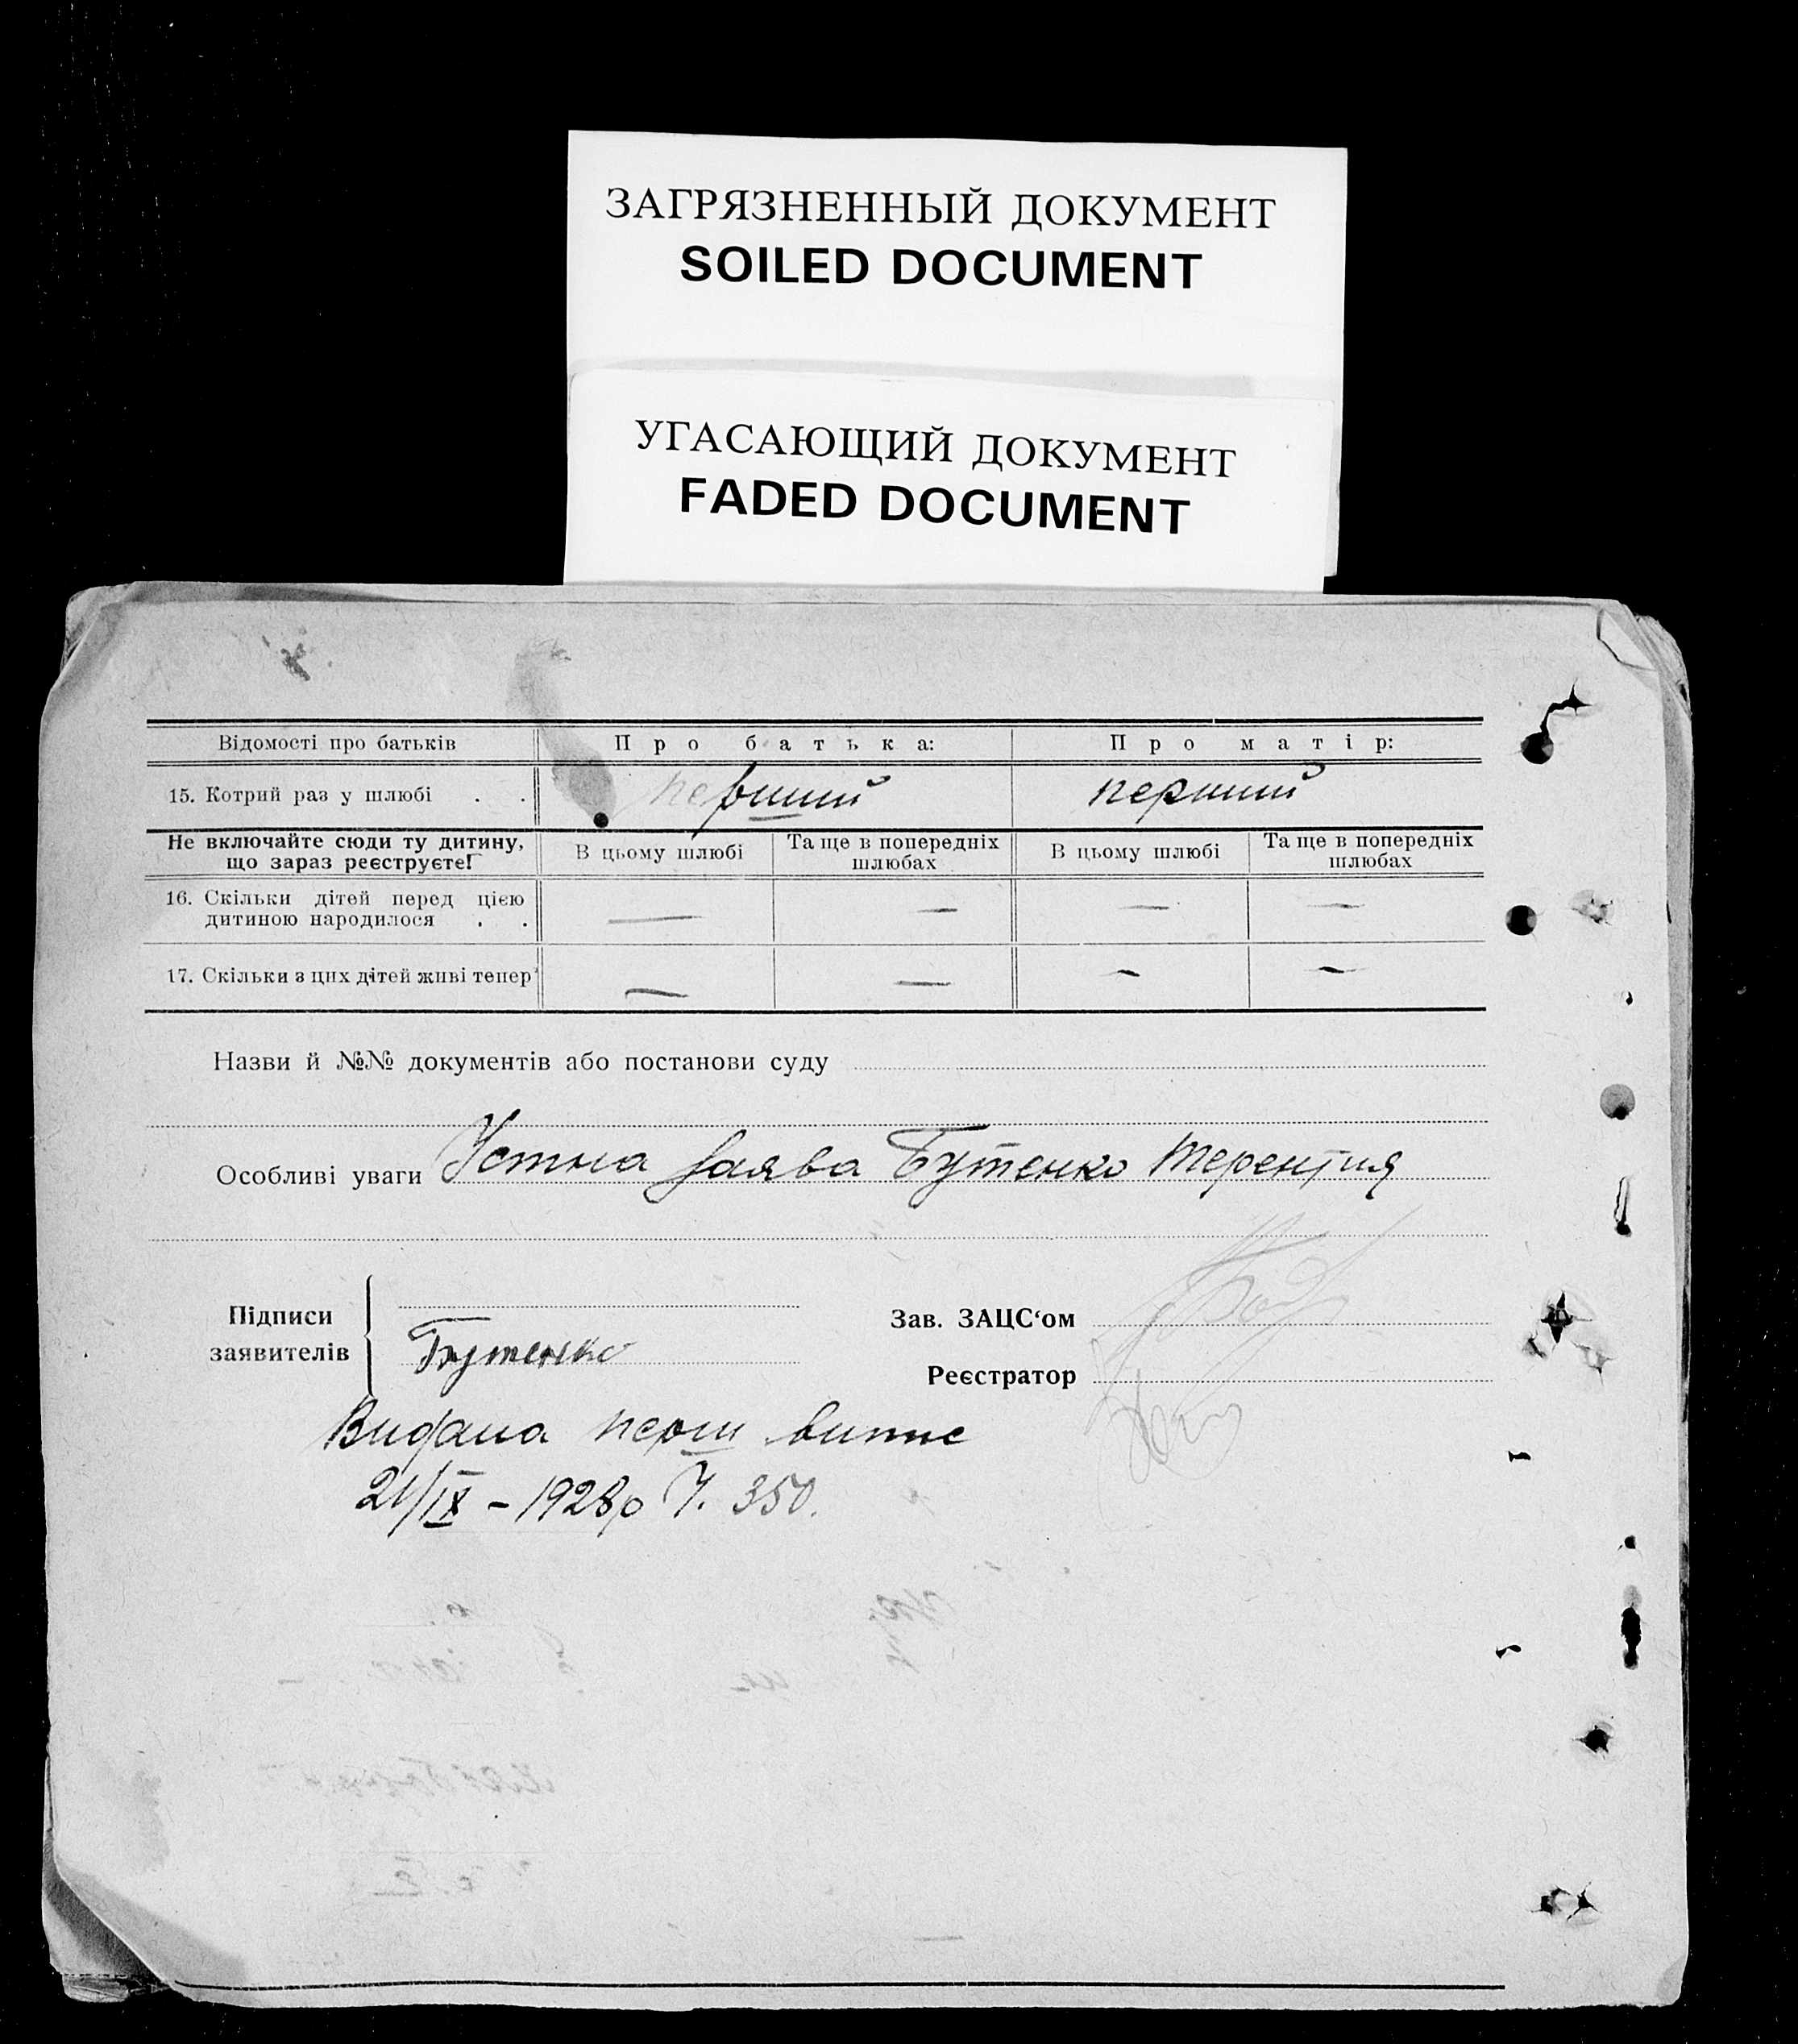 ЗАГРЯЗНЕННЫЙ ДОКУМЕНТ
SOILED DOCUMENT
УГАСАЮЩИЙ ДОКУМЕНТ
FADED DOCUMENT
Відомості про батьків Про батька: Про матір:
15. Котрий раз у шлюбі . . перший перший
Не включайте сюди ту дитину, що зараз реєструєте! В цьому шлюбі Та ще в попередніх шлюбах В цьому шлюбі Та ще в попередніх шлюбах
16. Скільки дітей перед цією дитиною народилося . . — — — —
17. Скільки з цих дітей живі тепер — — — —
Назви й №№ документів або постанови суду
Особливі уваги Устна заява Бутенко Терентия
Підписи заявителів Бутенко
Зав. ЗАЦС‘ом
Реєстратор
Видана перш випис
21/IX – 1928р Ч. 350.